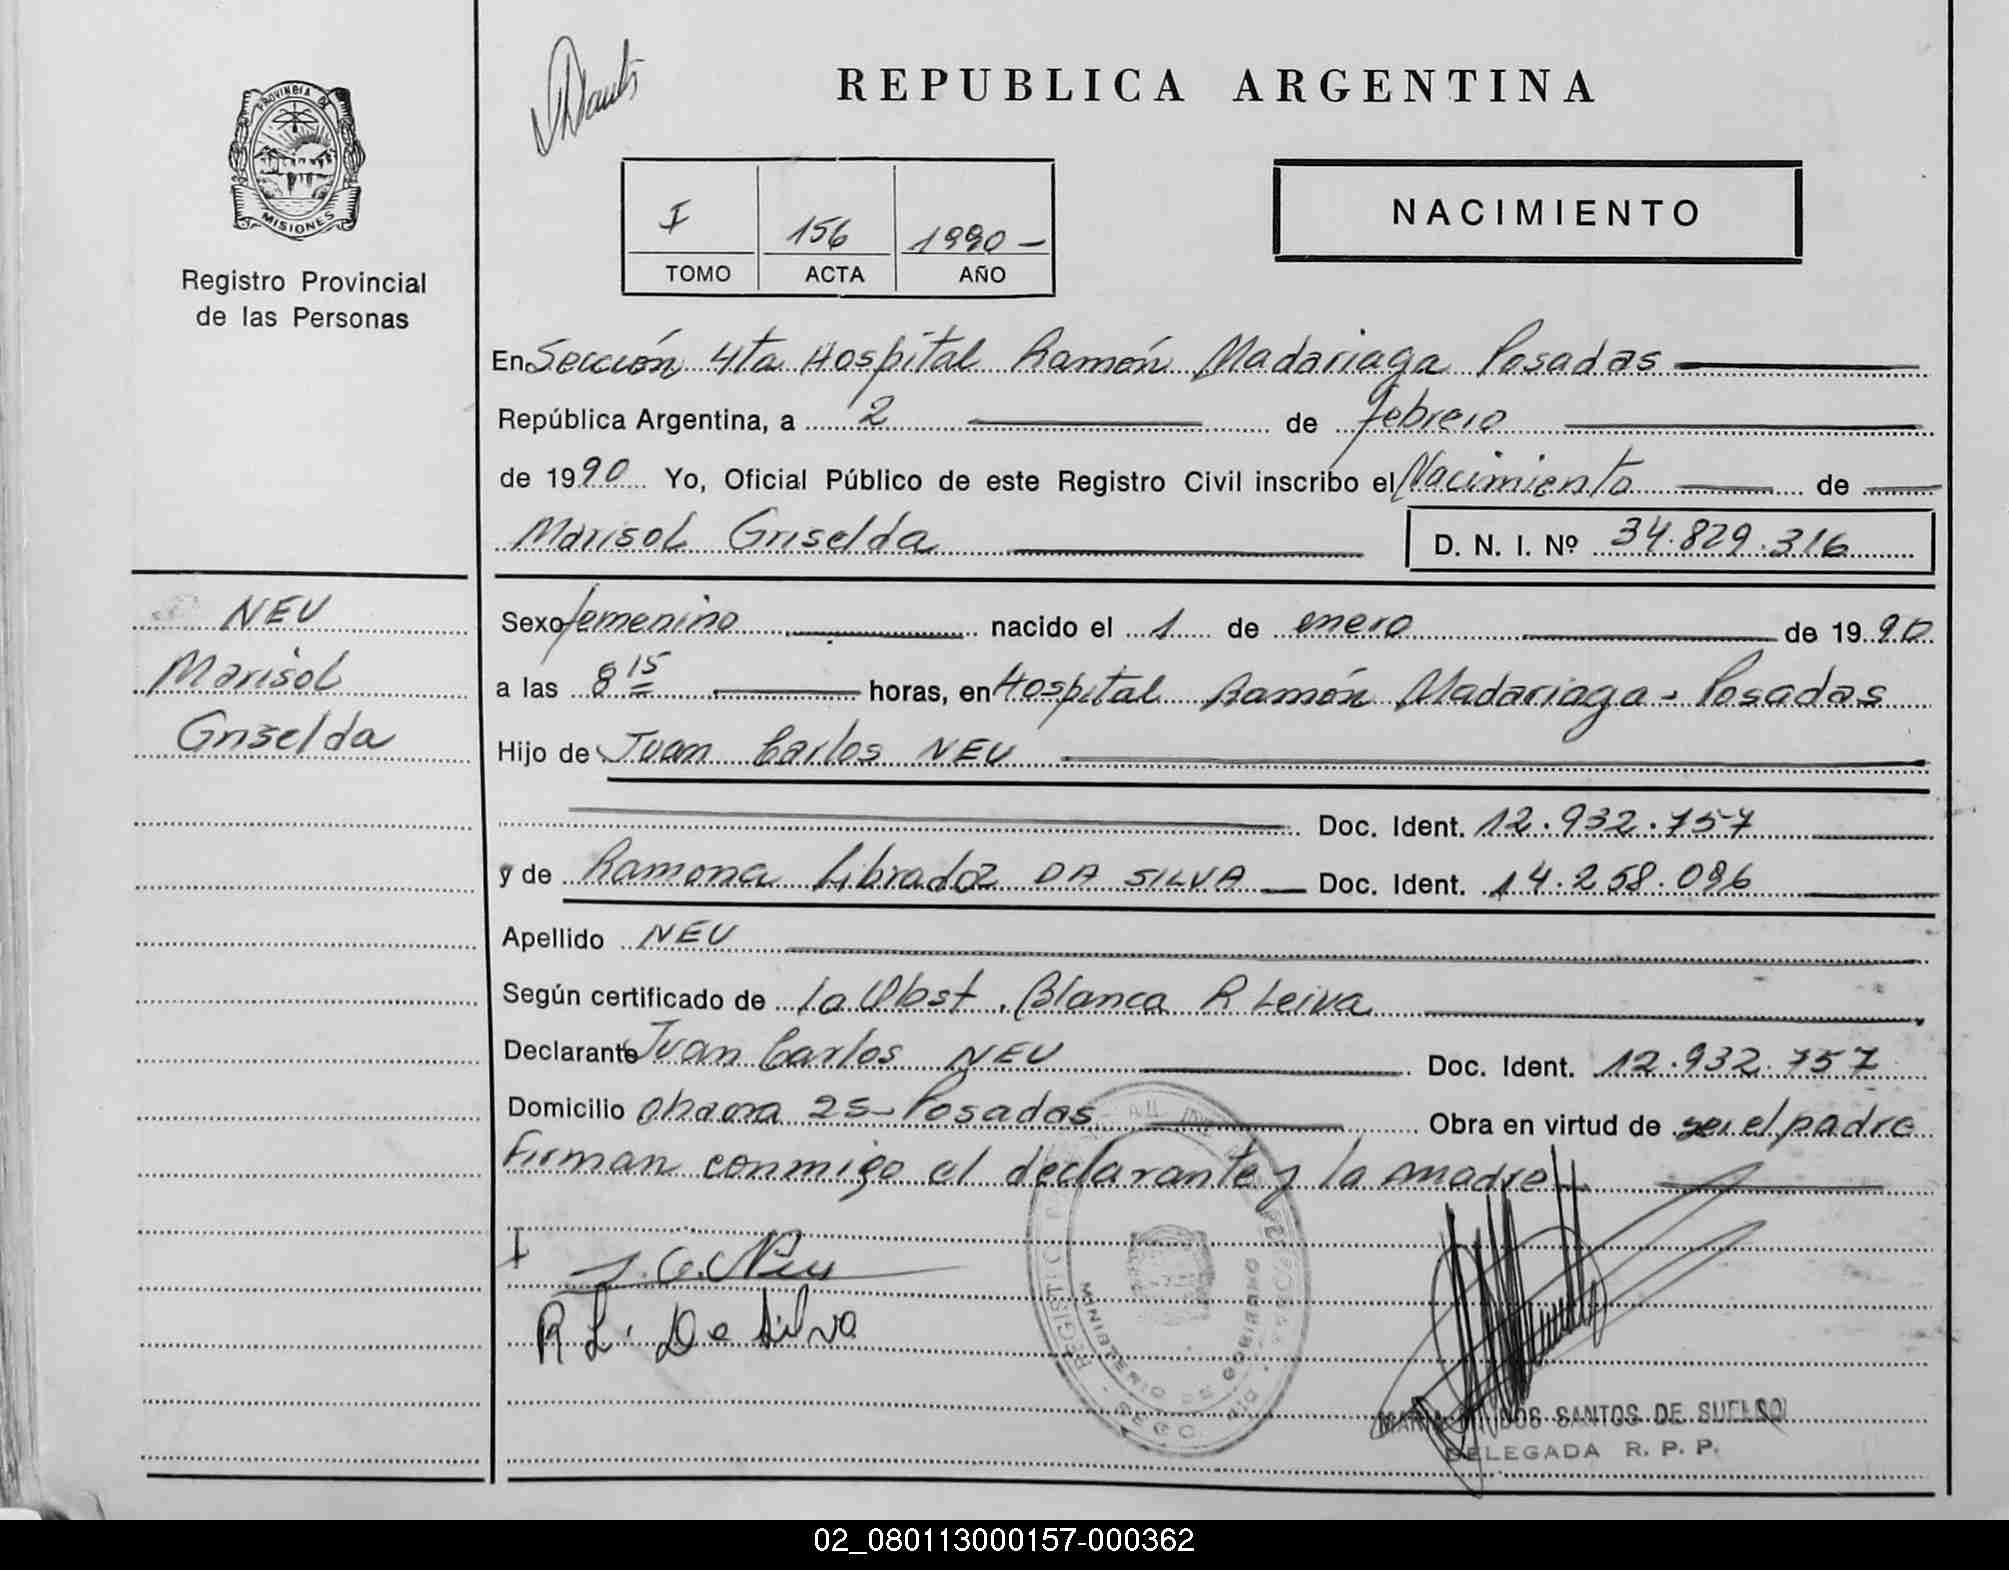 REPUBLICA ARGENTINA
PROVINCIA DE
MISIONES
Registro Provincial
de las Personas
I 156 1990 -
TOMO ACTA AÑO
NACIMIENTO
En Sección 4ta Hospital Ramón Madariaga Posadas
República Argentina, a 2 de febrero
de 1990 Yo, Oficial Público de este Registro Civil inscribo el Nacimiento de
Marisol Griselda D. N. I. Nº 34.829.316
NEU
Marisol
Griselda
Sexo femenino nacido el 1 de enero de 1990
a las 8 15 horas, en Hospital Ramón Madariaga - Posadas
Hijo de Juan Carlos NEU
Doc. Ident. 12.932.757
y de Ramona Librada DA SILVA Doc. Ident. 14.258.096
Apellido NEU
Según certificado de la Obst. Blanca R Leiva
Declarante Juan Carlos NEU Doc. Ident. 12.932.757
Domicilio 25 - Posadas Obra en virtud de ser el padre
Firman conmigo el declarante y la madre
J. C. Neu
R L. Da Silva
MINISTERIO DE GOBIERNO
DOS SANTOS DE SUELDO
DELEGADA R. P. P.
02_080113000157-000362